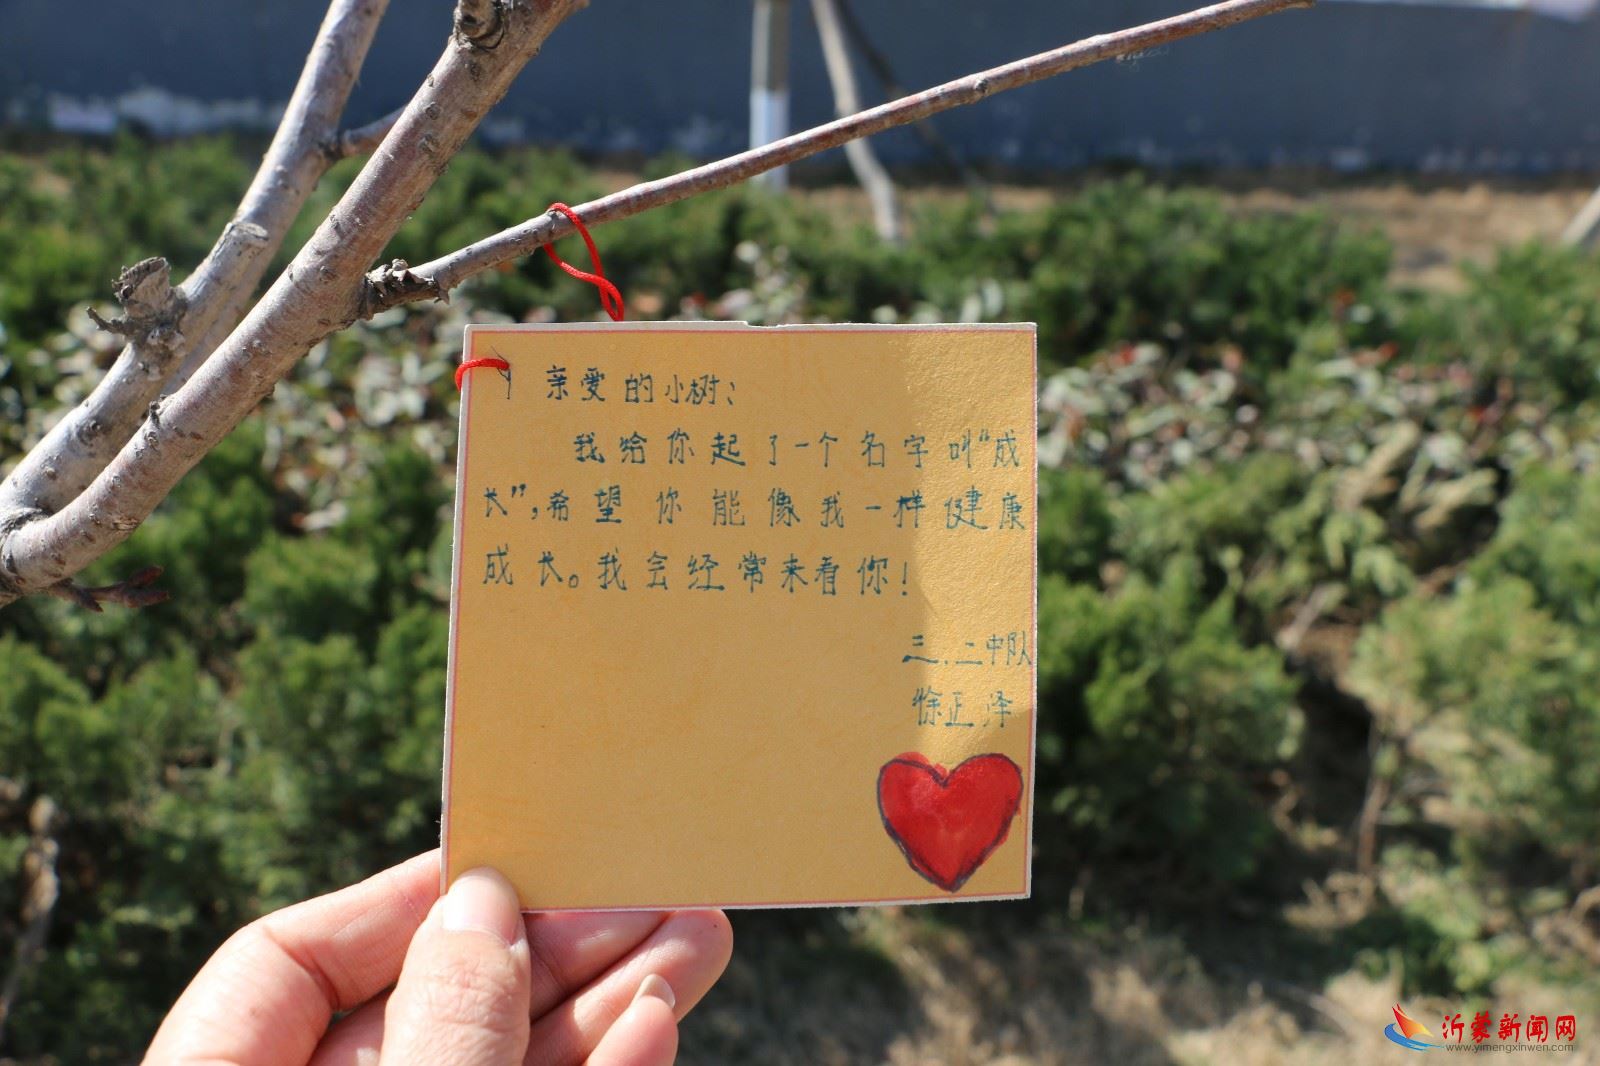 亲爱的小树：
我给你起了一个名字叫“成
长”，希望你能像我一样健康
成长。我会经常来看你！
三.二中队
徐正泽
沂蒙新闻网
www.yimengxinwen.com